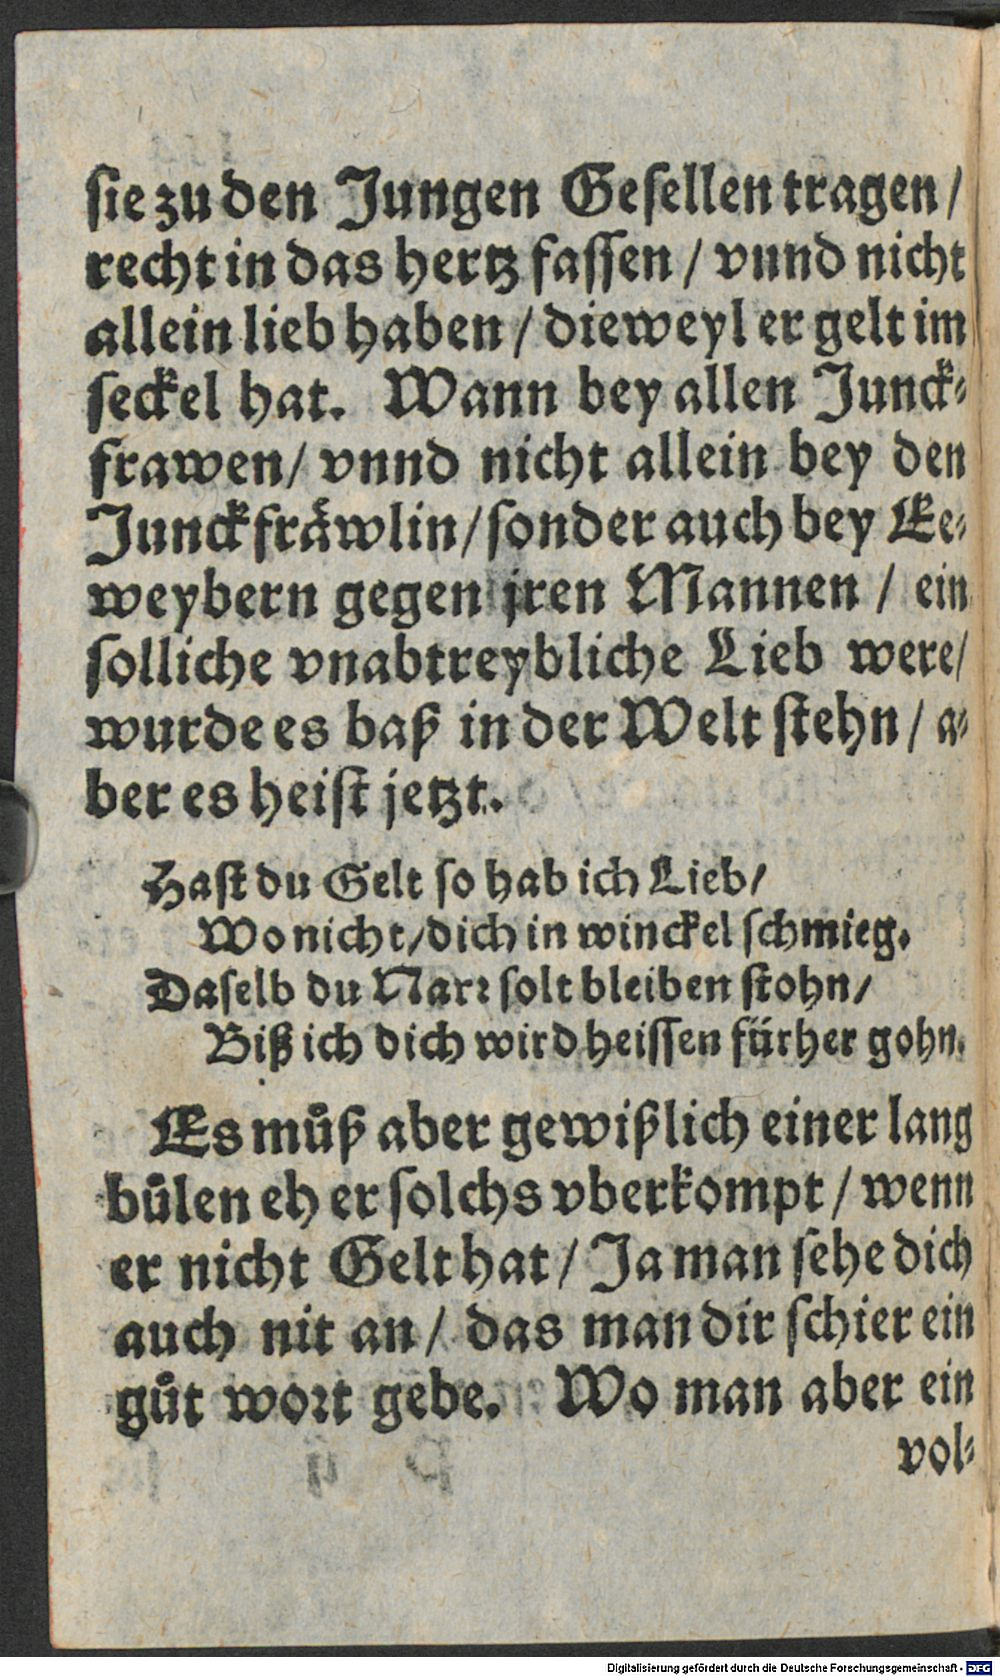 sie zu den Jungen Gesellen tragen /
recht in das hertz fassen / vnnd nicht
allein lieb haben / dieweyl er gelt im
seckel hat. Wann bey allen Junck⸗
frawen / vnnd nicht allein bey den
Junckfraͤwlin / sonder auch bey Ee⸗
weybern gegen jren Mannen / ein
solliche vnabtreybliche Lieb were /
wurde es baß in der Welt stehn / a⸗
ber es heist jetzt.
Hast du Gelt so hab ich Lieb /
Wo nicht / dich in winckel schmieg.
Daselb du Narr solt bleiben stohn /
Biß ich dich wird heissen fürher gohn.
Es muͦß aber gewißlich einer lang
buͦlen eh er solchs vberkompt / wenn
er nicht Gelt hat / Ja man sehe dich
auch nit an / das man dir schier ein
guͦt wort gebe. Wo man aber ein
vol⸗
Digitalisierung gefördert durch die Deutsche Forschungsgemeinschaft - DFG